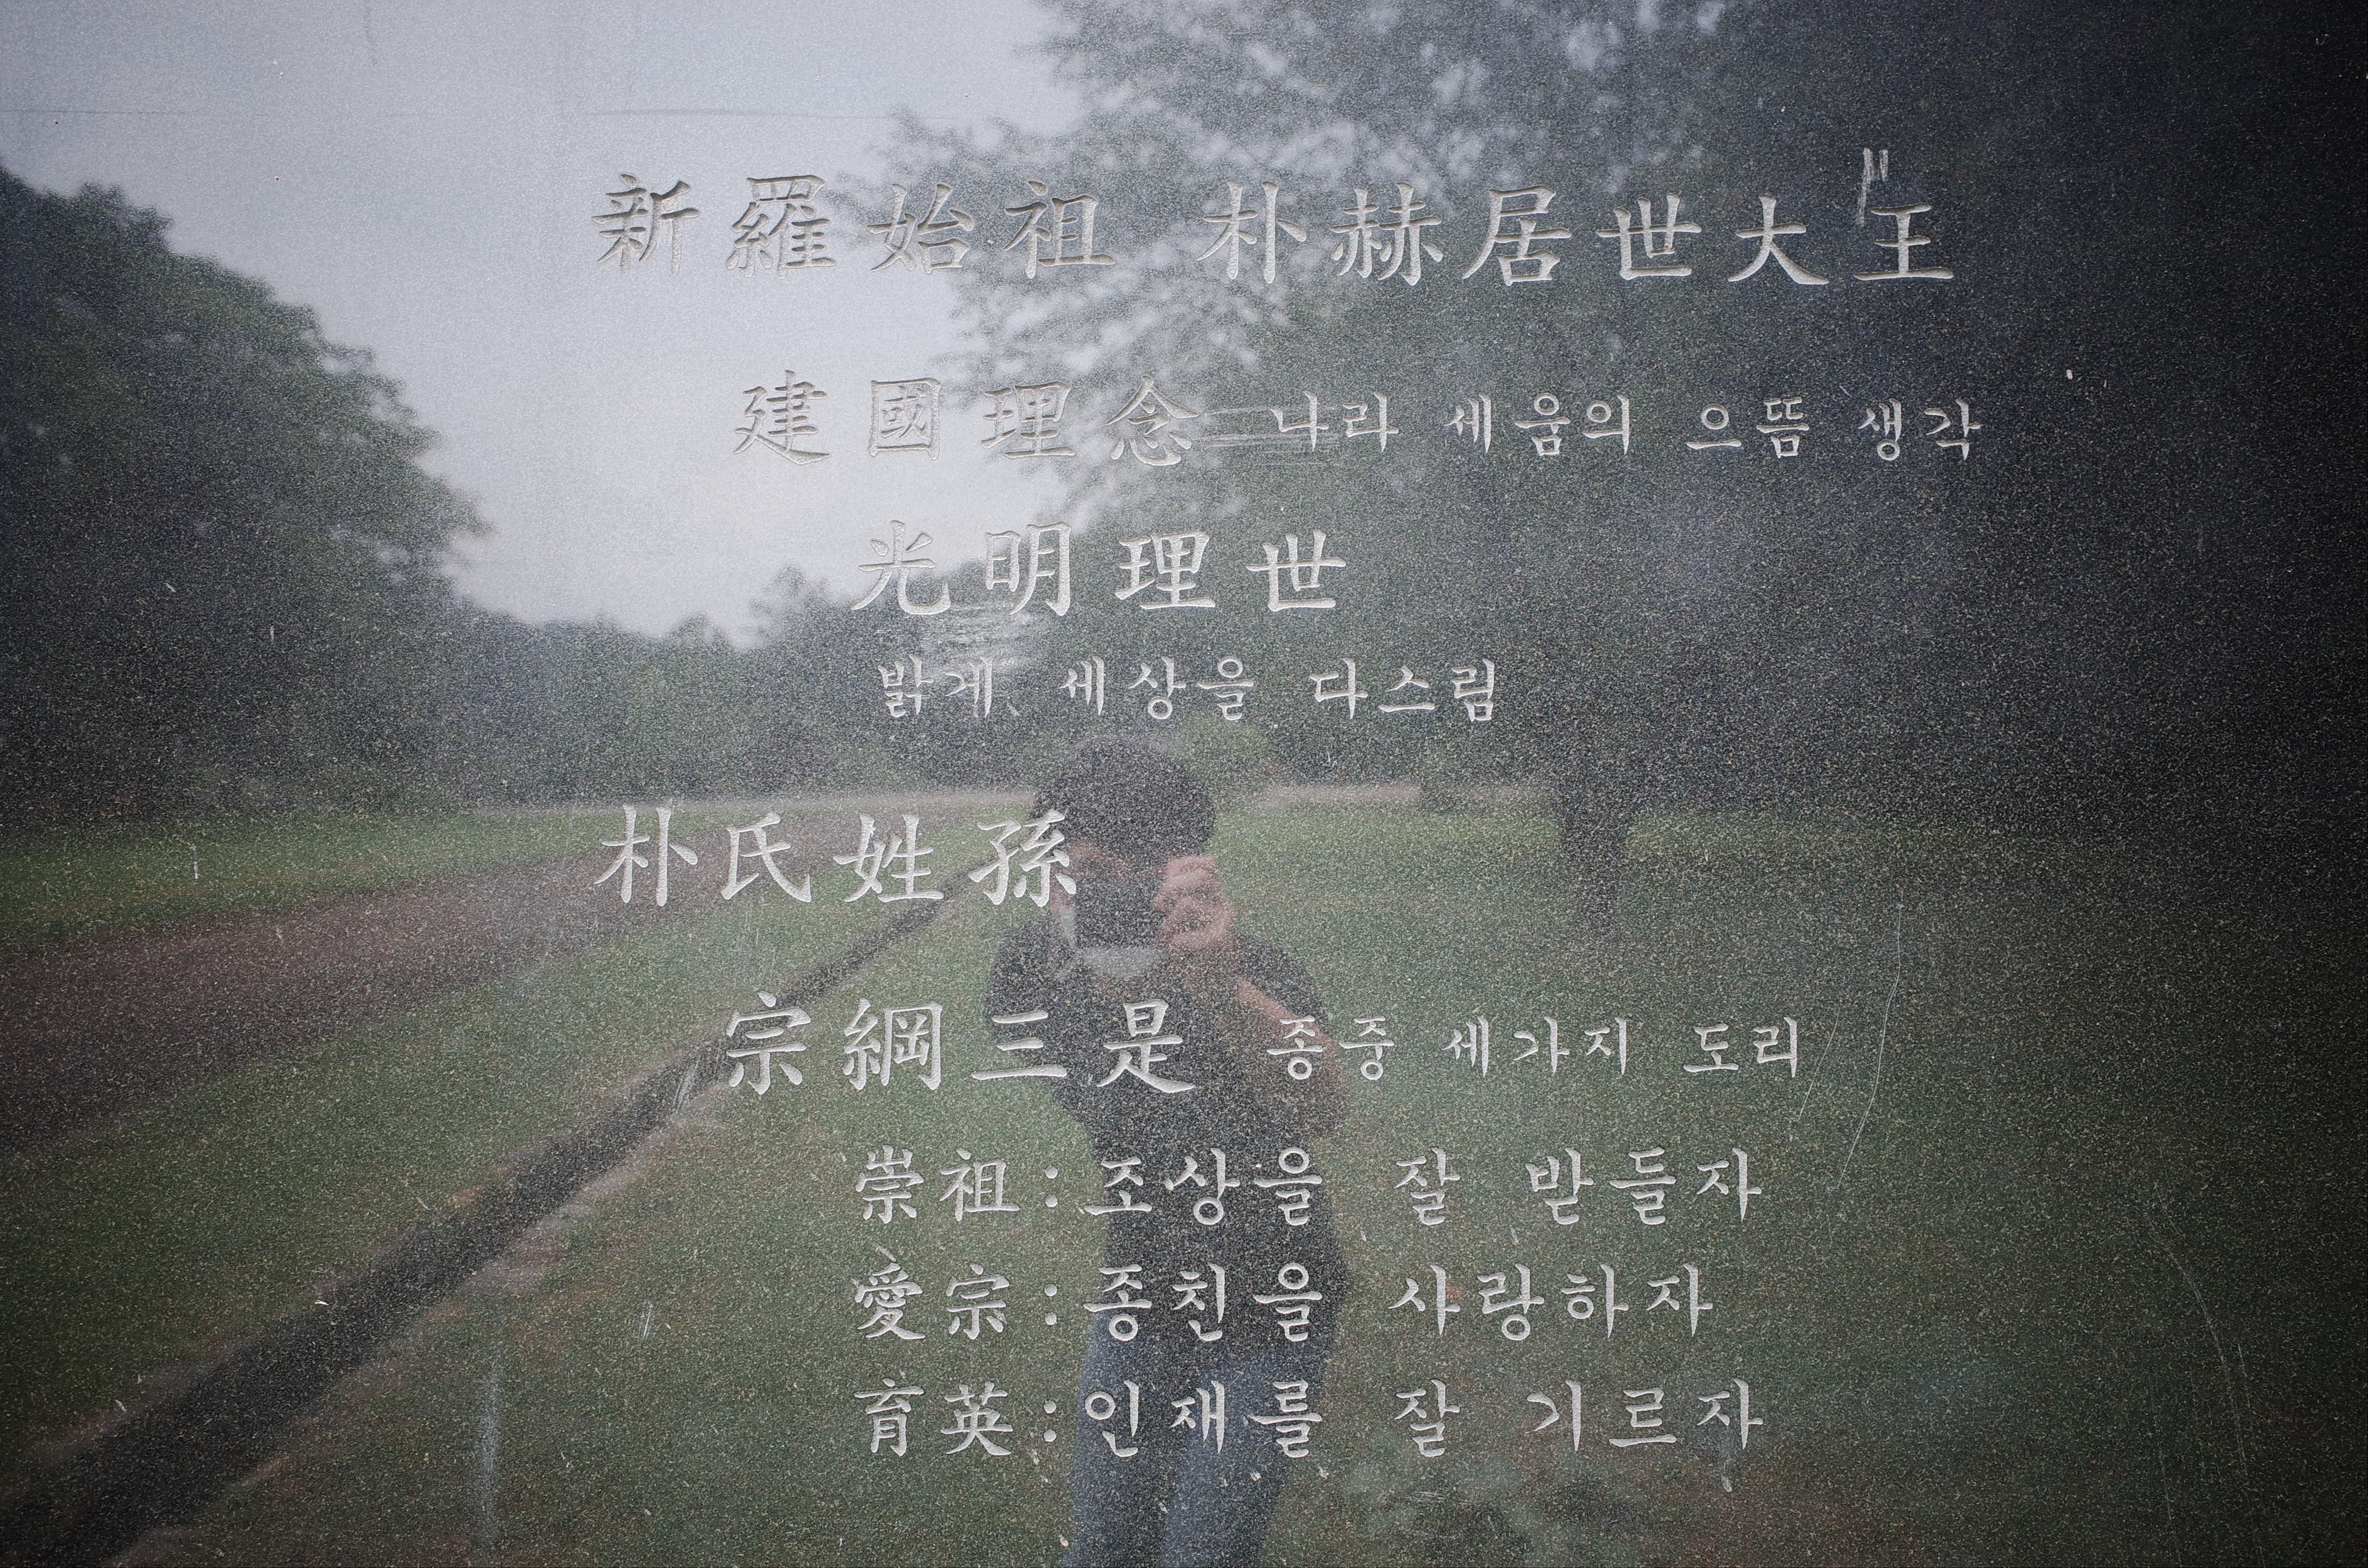 新羅始祖 朴赫居世大王
建國理念 나라 세움의 으뜸 생각
光明理世
밝게 세상을 다스림
朴氏姓孫
宗綱三是 종중 세가지 도리
崇祖:조상을 잘 받들자
愛宗:종친을 사랑하자
育英:인재를 잘 기르자